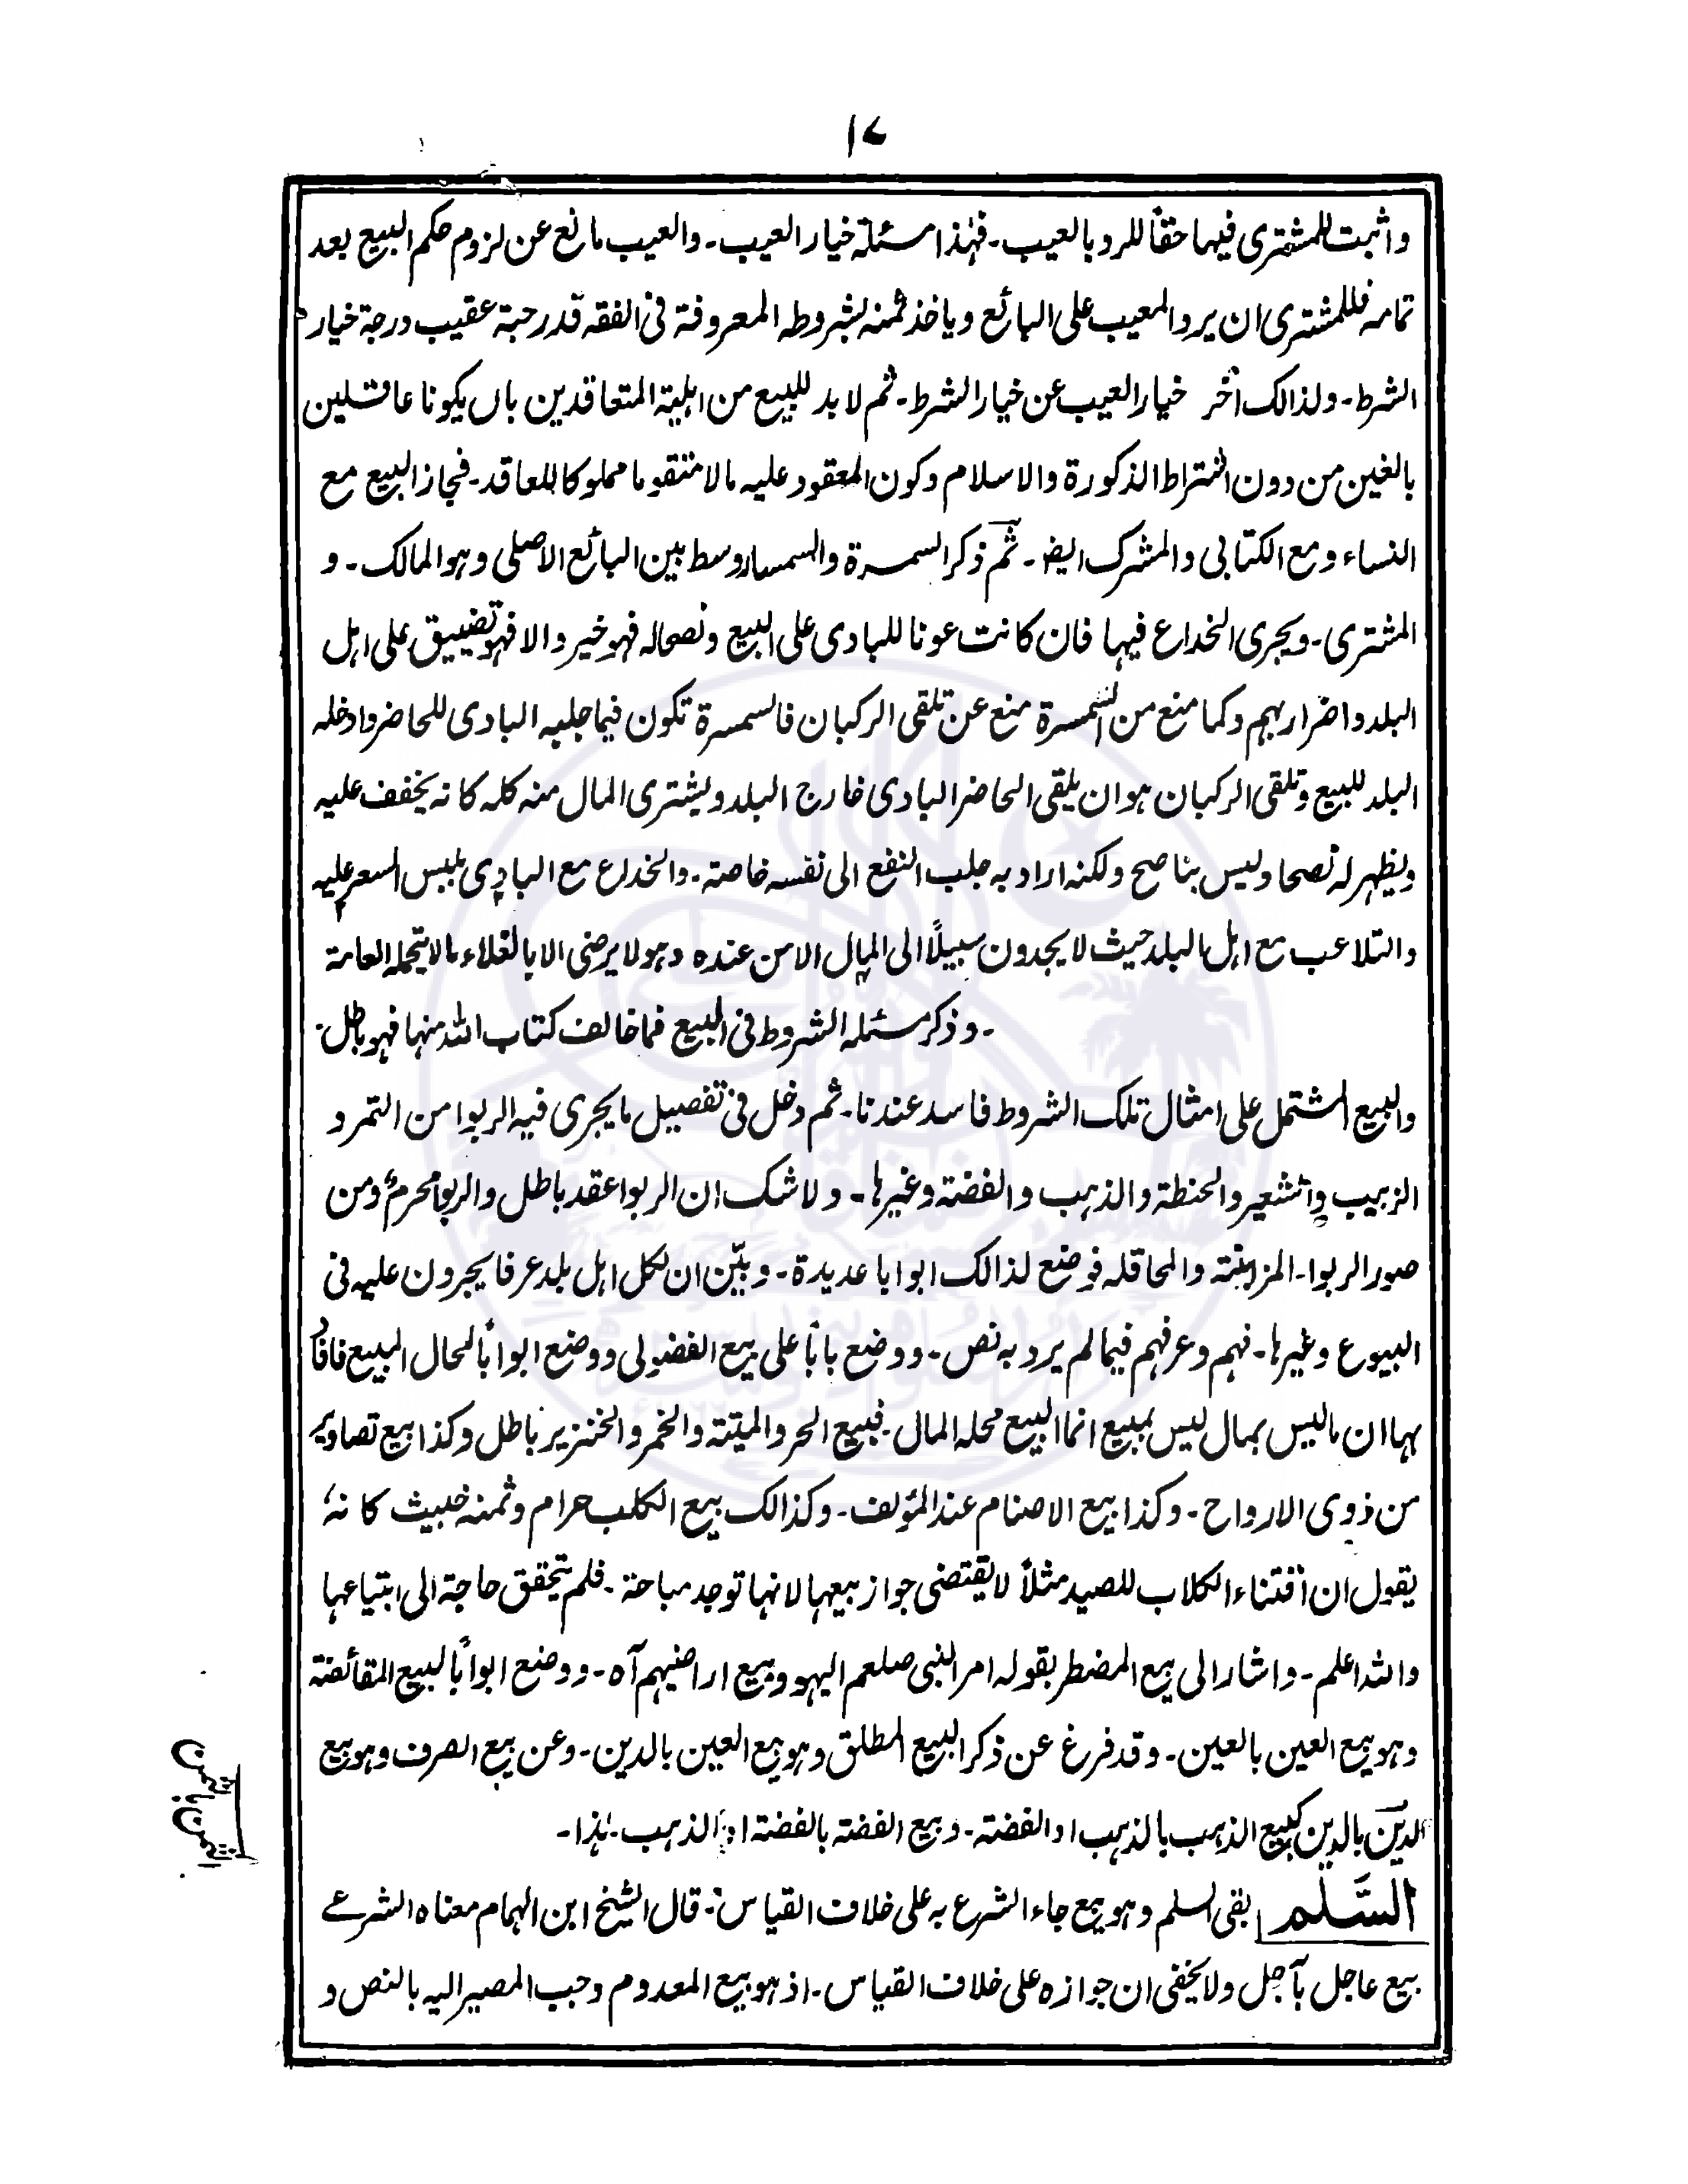 ۱۷
واثبت للمشتری فیہا حقاً للرد بالعیب۔ فہٰذا مسئلۃ خیار العیب۔ والعیب مانع عن لزوم حکم البیع بعد
تمامہ فللمشتری ان یرد المعیب علی البائع ویاخذ ثمنہ بشروطہ المعروفۃ فی الفقہ قدر حبۃ عقیب درجۃ خیار
الشرط۔ ولذالک اُخر خیار العیب عن خیار الشرط۔ ثم لا بد للبیع من اہلیۃ المتعاقدین باں یکونا عاقلین
بالغین من دون اشتراط الذکورۃ والاسلام وکون المعقود علیہ مالا متقوما مملوکا للعاقد۔ فجاز البیع مع
النساء ومع الکتابی والمشرک ایضا۔ ثم ذکر السمسرۃ والسمسار وسط بین البائع الاصلی وہو المالک۔ و
المشتری۔ ویجری الخداع فیہا فان کانت عونا للبادی علی البیع ونصحالہ فہو خیر والا فہو تضییق علی اہل
البلد واضرار بہم وکما منع من السمسرۃ منع عن تلقی الرکبان فالسمسرۃ تکون فیما جلبہ البادی للحاضر وادخلہ
البلد للبیع وتلقی الرکبان ہو ان یلقی الحاضر البادی خارج البلد ویشتری المال منہ کلہ کانہ یخفف علیہ
ویظہر لہ نصحا ولیس بناصح ولکنہ اراد بہ جلب النفع الی نفسہ خاصۃ۔ والخداع مع البادی بلبس السعر علیہ
والتلاعب مع اہل البلد حیث لا یجدون سبیلاً الی المال الا من عندہ وہو لا یرضی الا بالغلاء مالا یتحملہ العامۃ
۔ وذکر مسئلہ الشروط فی البیع فما خالف کتاب اللہ منہا فہو باطل۔
والبیع المشتمل علی امثال تلک الشروط فاسد عندنا۔ ثم دخل فی تفصیل ما یجری فیہ الربوا من التمر و
الزبیب والشعیر والحنطۃ والذہب والفضۃ وغیرہا۔ ولا شک ان الربوا عقد باطل والربوا محرم ومن
صور الربوا۔ المزابنۃ والمحاقلہ فوضع لذالک ابوابا عدیدۃ۔ وبیّن ان لکل اہل بلد عرفا یجرون علیہ فی
البیوع وغیرہا۔ فہم وعرفہم فیما لم یرد بہ نص۔ ووضع باباً علی بیع الفضولی ووضع ابواباً لمحال البیع فافاد
بہا ان ما لیس بمال لیس بمبیع انما البیع محلہ المال۔ فبیع الحر والمیتۃ والخمر والخنزیر باطل وکذا بیع تصاویر
من ذوی الارواح۔ وکذا بیع الاصنام عند المؤلف۔ وکذالک بیع الکلب حرام وثمنہ خبیث کانہ
یقول ان اقتناء الکلاب للصید مثلاً لا یقتضی جواز بیعہا لانہا توجد مباحۃ۔ فلم یتحقق حاجۃ الی ابتیاعہا
واللہ اعلم۔ واشار الی بیع المضطر بقولہ امر النبی صلعم الیہود بیع اراضیہم آہ۔ ووضع ابواباً لبیع المقائضۃ
وہو بیع العین بالعین۔ وقد فرغ عن ذکر البیع المطلق وہو بیع العین بالدین۔ وعن بیع الصرف وہو بیع
الدین بالدین کبیع الذہب بالذہب او الفضۃ۔ وبیع الفضۃ بالفضۃ او الذہب۔ ہٰذا۔
الثمن بالثمن
السَّلم بقی السلم وہو بیع جاء الشرع بہ علی خلاف القیاس۔ قال الشیخ ابن الہمام معناہ الشرعے
بیع عاجل بآجل ولا یخفی ان جوازہ علی خلاف القیاس۔ اذ ہو بیع المعدوم وجب المصیر الیہ بالنص و